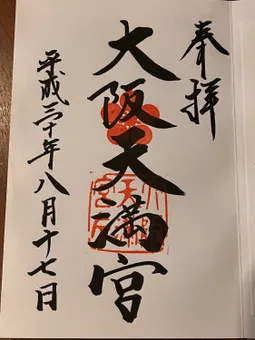 奉拝
大阪天満宮
平成三十年八月十七日